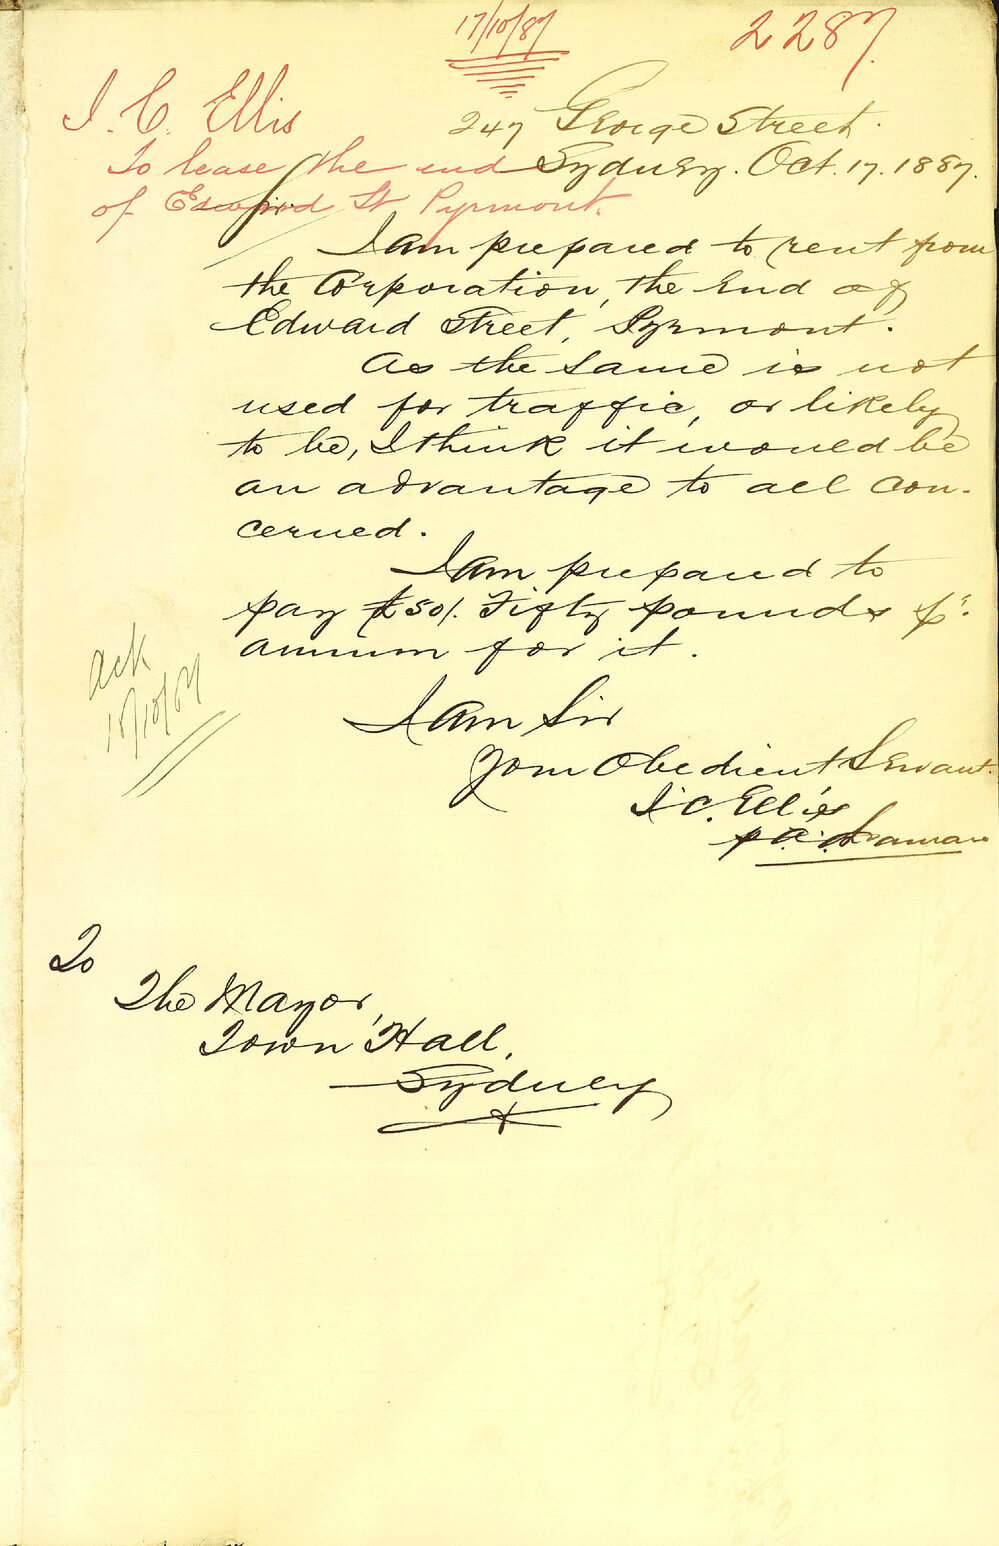 17/10/87
2287.
I. C. Ellis
247 George Street.
To lease the end
Sydney. Oct. 17. 1887.
of Edward St Pyrmont.
I am prepared to rent from
the Corporation, the End of
Edward Street, Pyrmont.
As the same is not
used for traffic, or likely
to be, I think it would be
an advantage to all con-
cerned.
I am prepared to
pay £50/. Fifty pounds pr.
annum for it.
Ack
18/10/87
I am Sir
Your Obedient Servant.
I. C. Ellis
To
The Mayor,
Town Hall,
Sydney